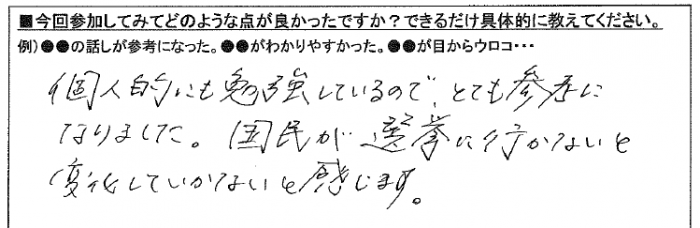 ■今回参加してみてどのような点が良かったですか？できるだけ具体的に教えてください。
例）●●の話しが参考になった。●●がわかりやすかった。●●が目からウロコ・・・
個人的にも勉強しているので、とても参考に
なりました。国民が選挙に行かないと
変化していかないと感じます。